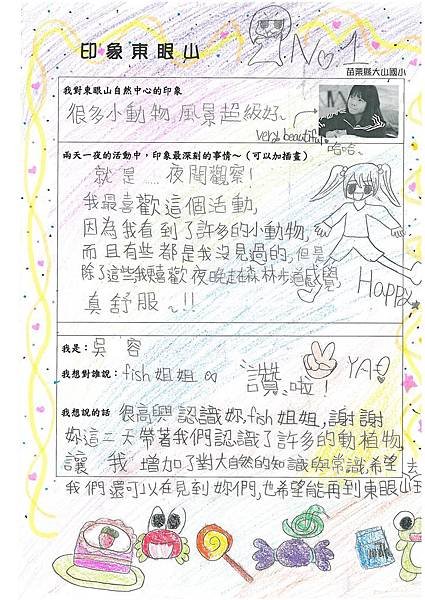 No.1
印象東眼山
苗栗縣大山國小
我對東眼山自然中心的印象
很多小動物,風景超級好~
very beautiful
哈哈~
兩天一夜的活動中，印象最深刻的事情～（可以加插畫）
就是……夜間觀察!
我最喜歡這個活動,
因為我看到了許多的小動物,
而且有些都是我沒見過的,但是
除了這些我更喜歡夜晚走在森林步道感覺
真舒服~!!
Happy
我是：吳 容
我想對誰說：fish姐姐
讚啦!
YA
我想說的話 很高興認識妳,fish姐姐,謝謝
妳這二天帶著我們認識了許多的動植物,
讓 我 增加了對大自然的知識與常識,希望
我們還可以在見到妳們,也希望能再到東眼山玩
去